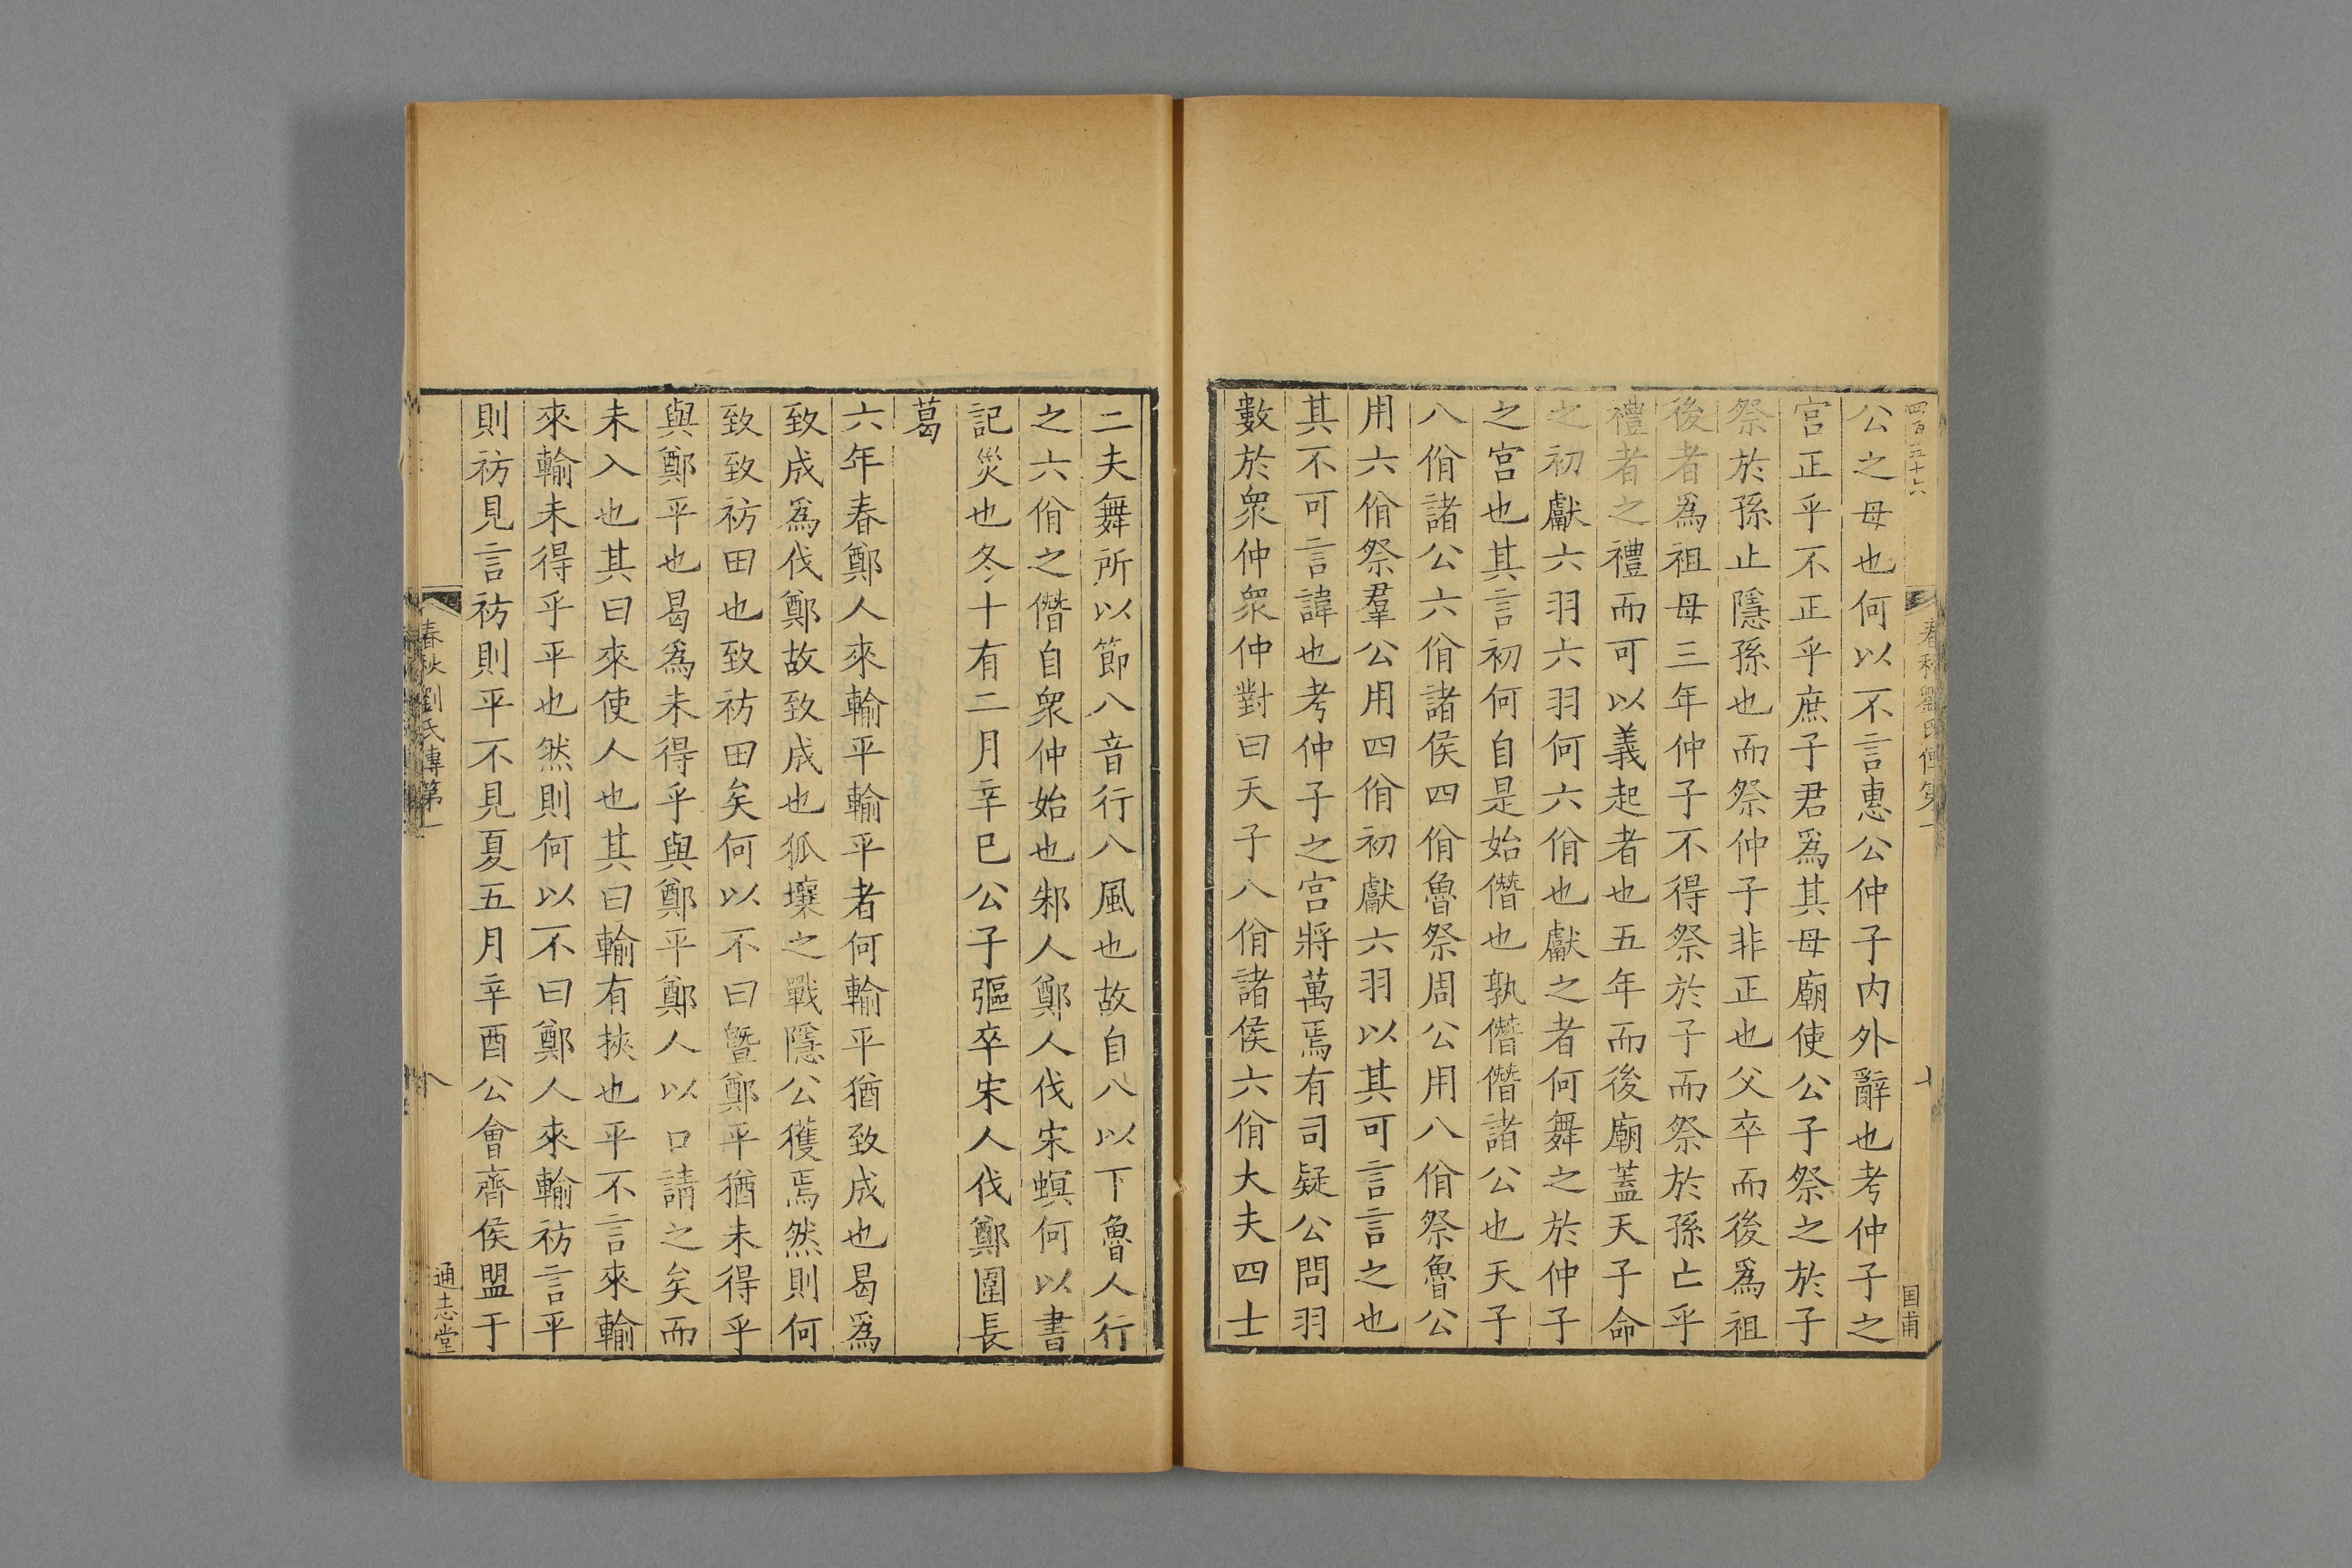 四百五十六
春秋劉氏傳第一
七
国甫
公之母也何以不言惠公仲子内外辭也考仲子之
宫正乎不正乎庶子君爲其母廟使公子祭之於子
祭於孫止隱孫也而祭仲子非正也父卒而後爲祖
後者爲祖母三年仲子不得祭於子而祭於孫亡乎
禮者之禮而可以義起者也五年而後廟蓋天子命
之初獻六羽六羽何六佾也獻之者何舞之於仲子
之宫也其言初何自是始僭也孰僭僭諸公也天子
八佾諸公六佾諸侯四佾魯祭周公用八佾祭魯公
用六佾祭羣公用四佾初獻六羽以其可言言之也
其不可言諱也考仲子之宫將萬焉有司疑公問羽
數於衆仲衆仲對曰天子八佾諸侯六佾大夫四士
二夫舞所以節八音行八風也故自八以下魯人行
之六佾之僭自衆仲始也邾人鄭人伐宋螟何以書
記災也冬十有二月辛巳公子彄卒宋人伐鄭圍長
葛
六年春鄭人來輸平輸平者何輸平猶致成也曷爲
致成爲伐鄭故致成也狐壤之戰隱公獲焉然則何
致致祊田也致祊田矣何以不曰曁鄭平猶未得乎
與鄭平也曷爲未得乎與鄭平鄭人以口請之矣而
未入也其曰來使人也其曰輸有挾也平不言來輸
來輸未得乎平也然則何以不曰鄭人來輸祊言平
則祊見言祊則平不見夏五月辛酉公會齊侯盟于
春秋劉氏傳第一
八
通志堂